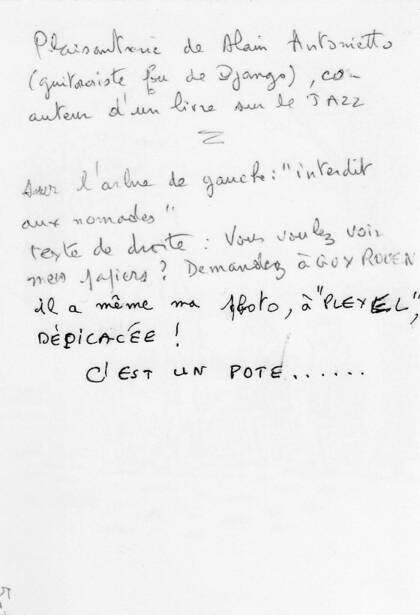 Plaisantrie de Alain Antonietto
(guitariste fou de Django), co-
auteur d'un livre sur le JAZZ
Sur l'arbre de gauche : "interdit
aux nomades"
texte de droite : Vous voulez voir
mes papiers ? Demandez à GUY ROUEN
il a même ma photo, à "PLEYEL",
DÉDICACÉE !
C'EST UN POTE......